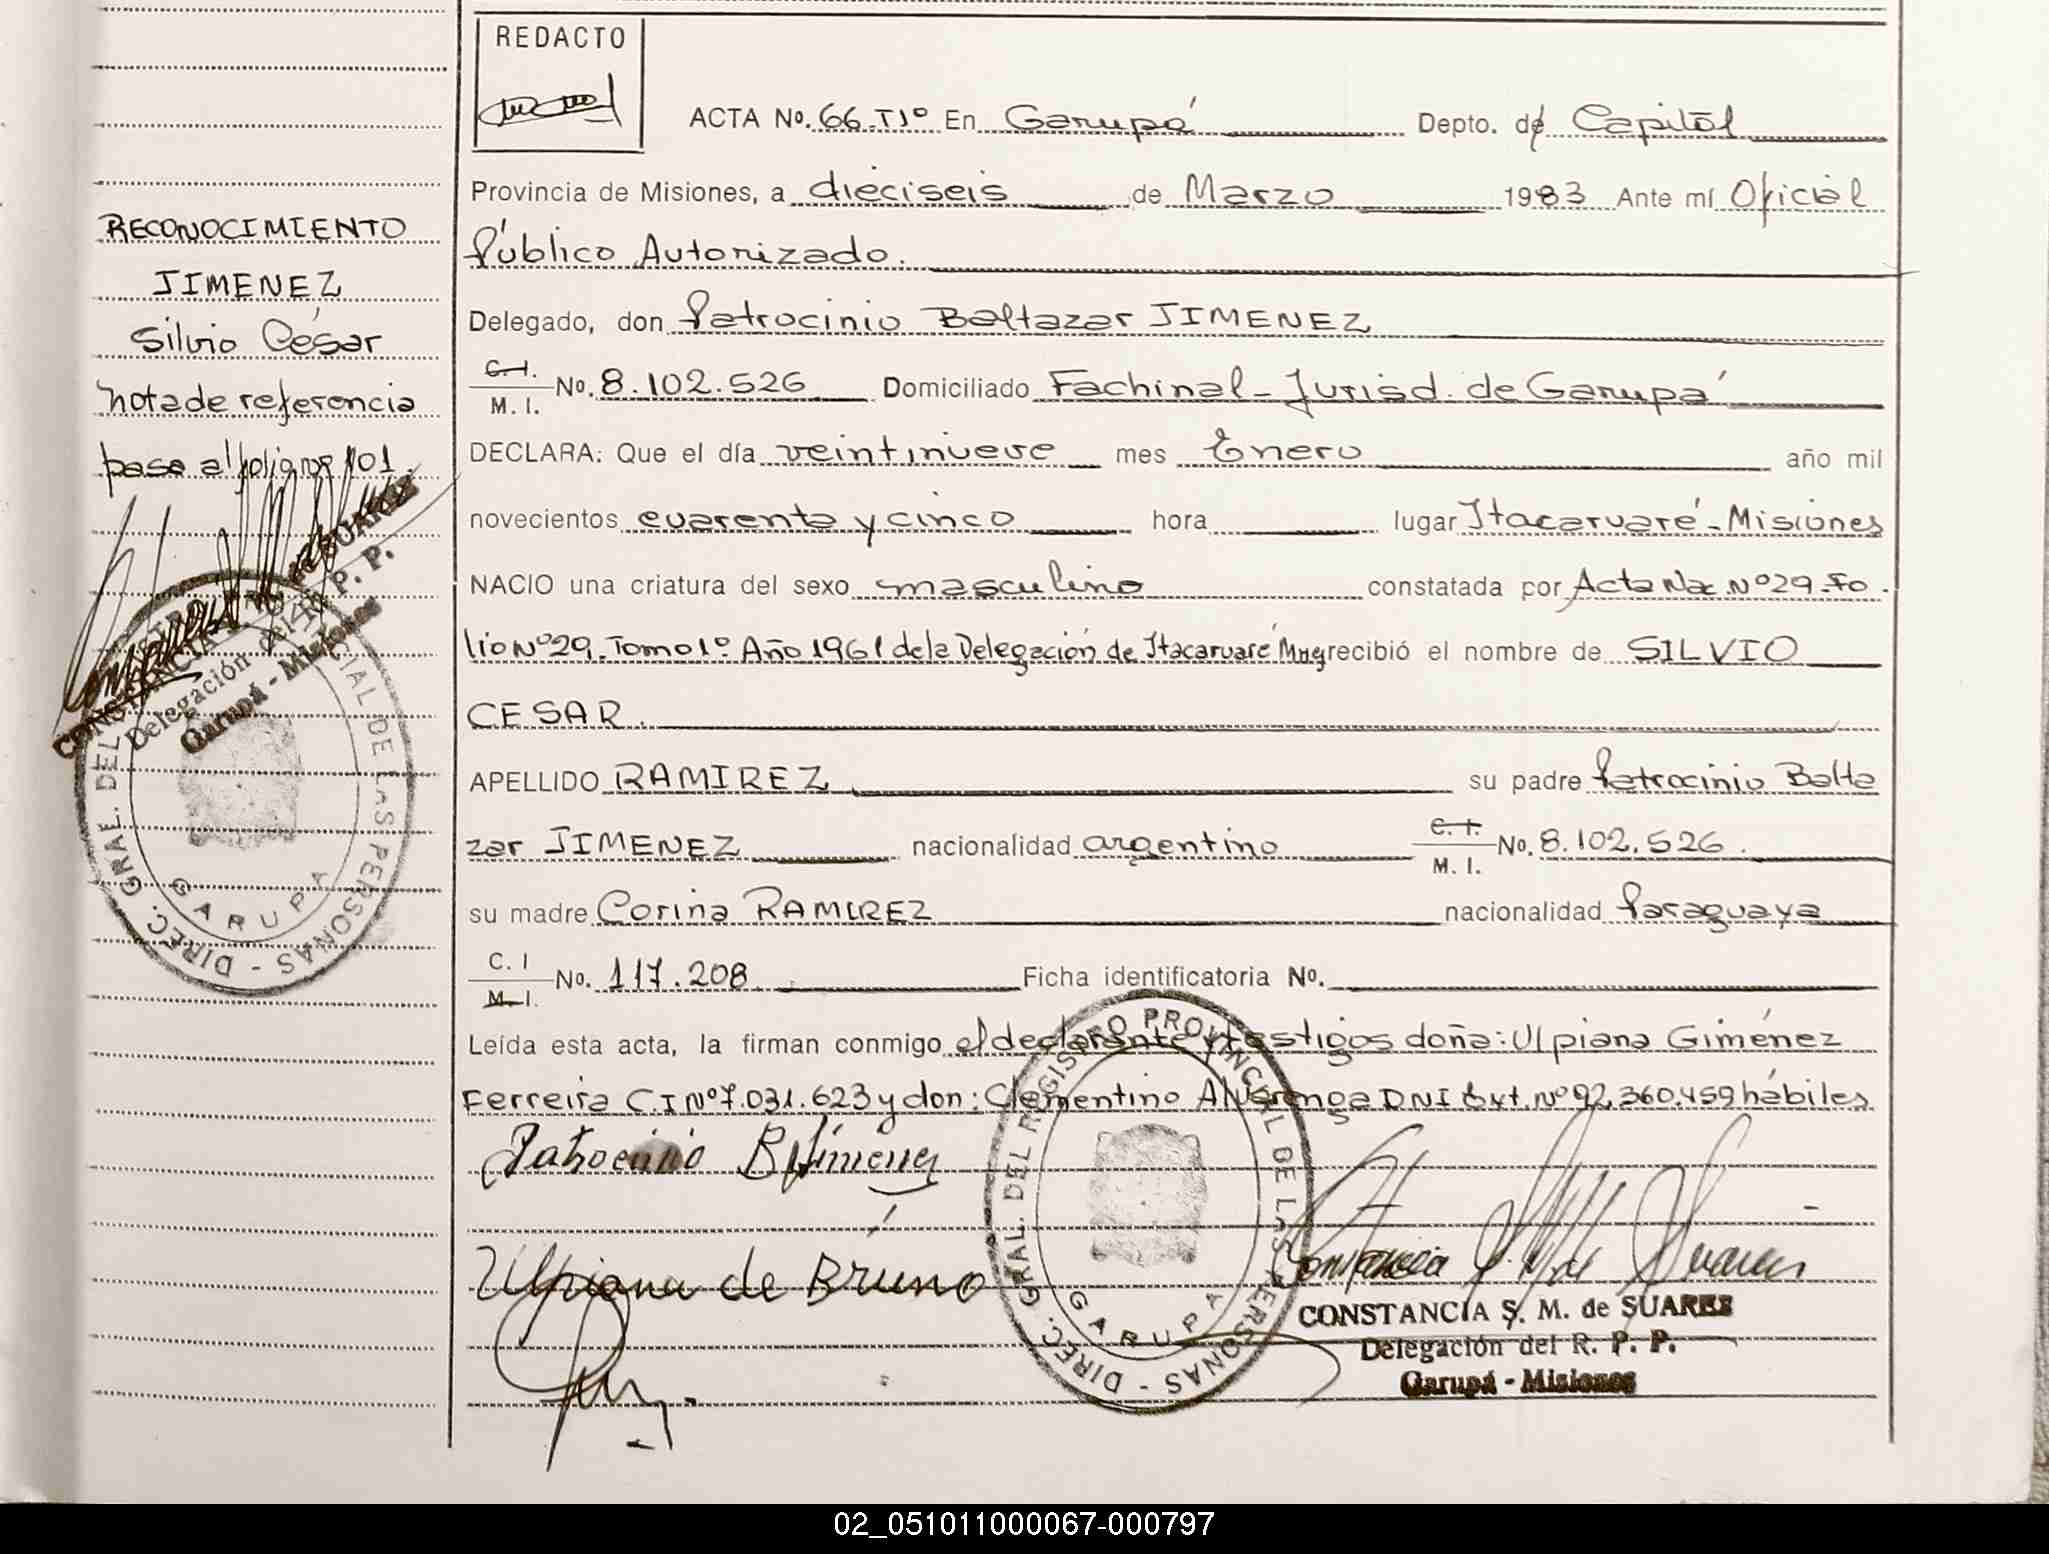 REDACTO
ACTA No. 66-TIº En Garupá Depto. de Capital
Provincia de Misiones, a dieciseis de Marzo 1983 Ante mí Oficial
Público Autorizado.
Delegado, don Patrocinio Baltazar JIMENEZ
C.I. M. I. No. 8.102.526 Domiciliado Fachinal - Jurisd. de Garupá
DECLARA: Que el día veintinueve mes Enero año mil
novecientos cuarenta y cinco hora lugar Itacaruaré - Misiones
NACIO una criatura del sexo masculino constatada por Acta Nac. Nº 29. Fo.
lio Nº 29. Tomo 1º Año 1961 de la Delegación de Itacaruaré Mnes recibió el nombre de SILVIO
CESAR.
APELLIDO RAMIREZ su padre Patrocinio Balta
zar JIMENEZ nacionalidad argentino C.I. M. I. No. 8.102.526.
su madre Corina RAMIREZ nacionalidad Paraguaya
C. I M. I. No. 117.208 Ficha identificatoria No.
Leída esta acta, la firman conmigo el declarante y testigos doña: Ulpiana Giménez
Ferreira C.I Nº 7.031.623 y don: Clementino Alvarenga DNI Ext. Nº 92.360.459 hábiles
Patrocinio B Jimenez
Ulpiana de Bruno
CONSTANCIA S. M. de SUAREZ
Delegación del R. P. P.
Garupá - Misiones
DIREC. GRAL. DEL REGISTRO PROVINCIAL DE LAS PERSONAS -
GARUPA
RECONOCIMIENTO
JIMENEZ
Silvio César
nota de referencia
pasa al folio nº 101.
Delegación del R. P. P.
Garupá - Misiones
DIREC. GRAL. DEL REGISTRO PROVINCIAL DE LAS PERSONAS -
GARUPA
02_051011000067-000797